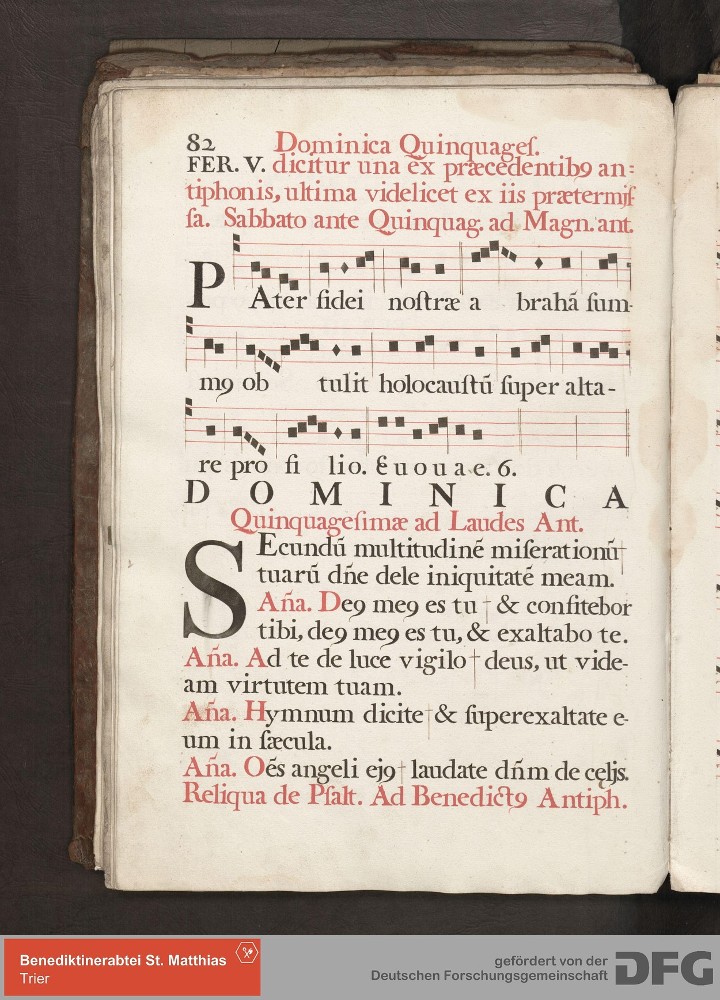 82 Dominica Quinquageſ.
FER. V. dicitur una ex præcedentibꝰ an=
tiphonis, ultima videlicet ex iis prætermiſ
ſa. Sabbato ante Quinquag. ad Magn. ant.
PAter fidei noſtræ a brahā ſum-
mꝰ ob tulit holocauſtū ſuper alta-
re pro fi lio. E u o u a e. 6.
DOMINICA
Quinquageſimæ ad Laudes Ant.
SEcundū multitudinē miſerationū†
tuarū dñe dele iniquitatē meam.
Aña. Deꝰ meꝰ es tu † & confitebor
tibi, deꝰ meꝰ es tu, & exaltabo te.
Aña. Ad te de luce vigilo † deus, ut vide-
am virtutem tuam.
Aña. Hymnum dicite † & ſuperexaltate e-
um in ſæcula.
Aña. Oēs angeli ejꝰ † laudate dñm de cęlis.
Reliqua de Pſalt. Ad Benedictꝰ Antiph.
Benediktinerabtei St. Matthias
Trier
gefördert von der
Deutschen Forschungsgemeinschaft DFG